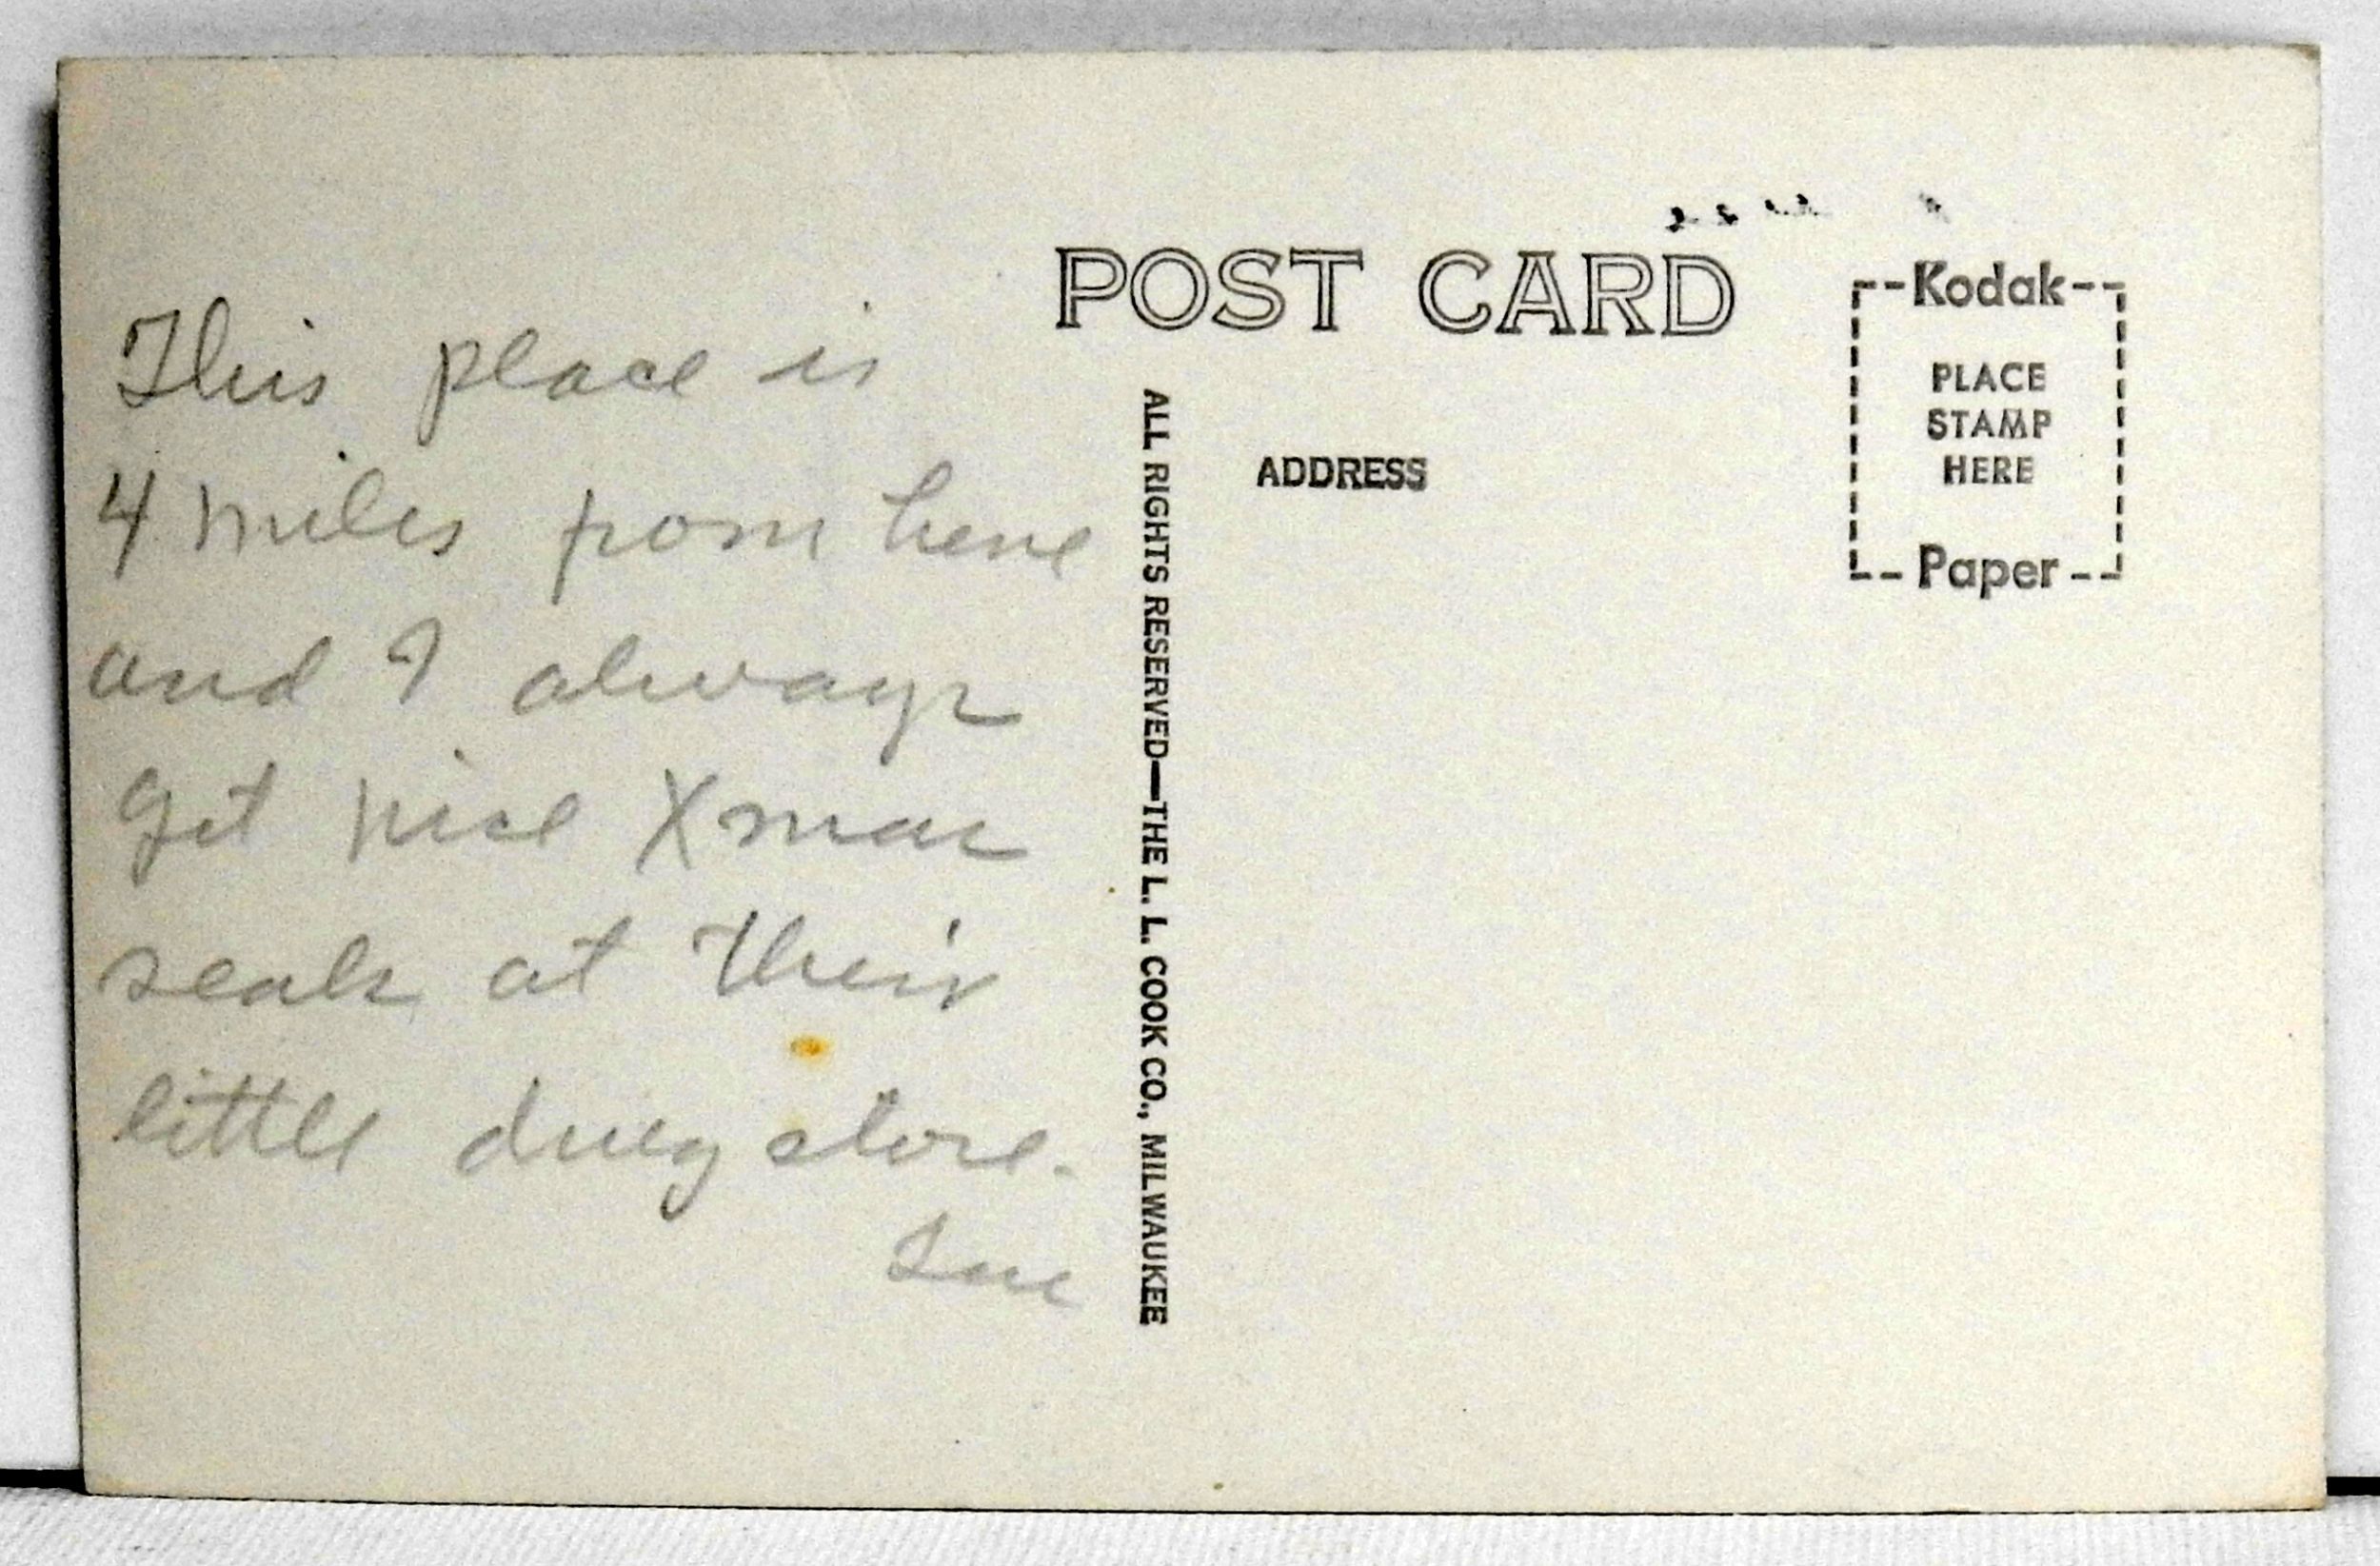 This place is
4 miles from here
and I always
get nice Xmas
seals at their
little drug store.
Sue
POST CARD
ALL RIGHTS RESERVED—THE L. L. COOK CO., MILWAUKEE
ADDRESS
Kodak
PLACE
STAMP
HERE
Paper